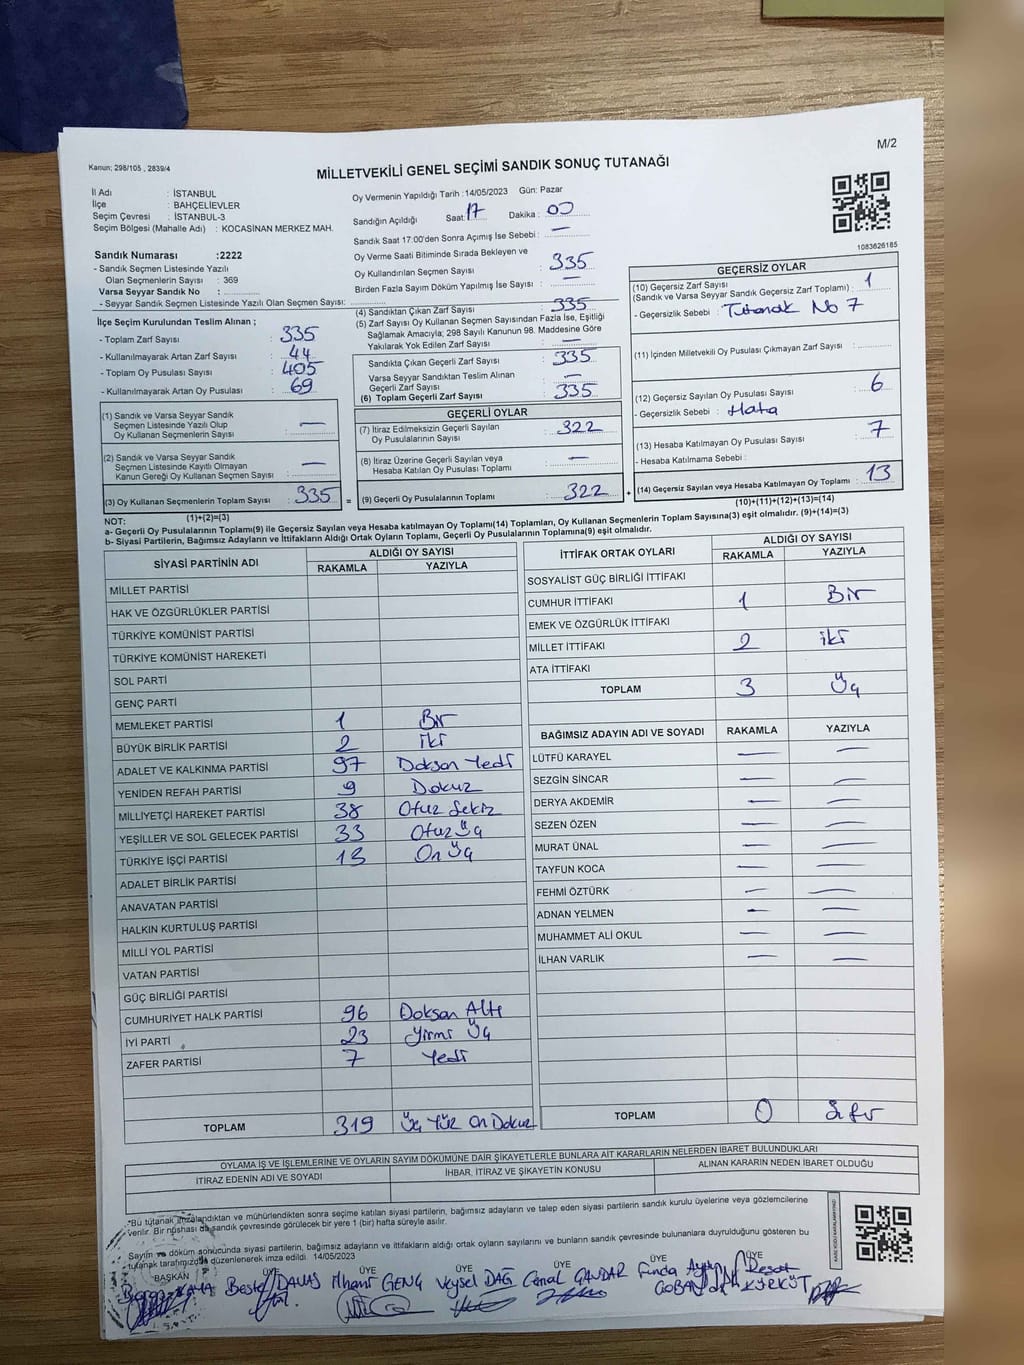 M/2
Kanun; 298/105 , 2839/4
MİLLETVEKİLİ GENEL SEÇİMİ SANDIK SONUÇ TUTANAĞI
İl Adı : İSTANBUL
İlçe : BAHÇELİEVLER
Seçim Çevresi : İSTANBUL-3
Seçim Bölgesi (Mahalle Adı) : KOCASİNAN MERKEZ MAH.
Sandık Numarası :2222
- Sandık Seçmen Listesinde Yazılı
Olan Seçmenlerin Sayısı : 369
Varsa Seyyar Sandık No :
- Seyyar Sandık Seçmen Listesinde Yazılı Olan Seçmen Sayısı:
Oy Vermenin Yapıldığı Tarih :14/05/2023 Gün: Pazar
Sandığın Açıldığı Saat: 17 Dakika : 00
Sandık Saat 17:00'den Sonra Açımış İse Sebebi : —
Oy Verme Saati Bitiminde Sırada Bekleyen ve
Oy Kullandırılan Seçmen Sayısı : 335
Birden Fazla Sayım Döküm Yapılmış İse Sayısı : —
1083626185
İlçe Seçim Kurulundan Teslim Alınan ;
- Toplam Zarf Sayısı : 335
- Kullanılmayarak Artan Zarf Sayısı : 44
- Toplam Oy Pusulası Sayısı : 405
- Kullanılmayarak Artan Oy Pusulası : 69
(1) Sandık ve Varsa Seyyar Sandık
Seçmen Listesinde Yazılı Olup
Oy Kullanan Seçmenlerin Sayısı : —
(2) Sandık ve Varsa Seyyar Sandık
Seçmen Listesinde Kayıtlı Olmayan
Kanun Gereği Oy Kullanan Seçmen Sayısı : —
(3) Oy Kullanan Seçmenlerin Toplam Sayısı : 335 =
(1)+(2)=(3)
(4) Sandıktan Çıkan Zarf Sayısı : 335
(5) Zarf Sayısı Oy Kullanan Seçmen Sayısından Fazla İse, Eşitliği
Sağlamak Amacıyla; 298 Sayılı Kanunun 98. Maddesine Göre
Yakılarak Yok Edilen Zarf Sayısı : —
Sandıkta Çıkan Geçerli Zarf Sayısı : 335
Varsa Seyyar Sandıktan Teslim Alınan
Geçerli Zarf Sayısı : —
(6) Toplam Geçerli Zarf Sayısı : 335
GEÇERLİ OYLAR
(7) İtiraz Edilmeksizin Geçerli Sayılan
Oy Pusulalarının Sayısı : 322
(8) İtiraz Üzerine Geçerli Sayılan veya
Hesaba Katılan Oy Pusulası Toplamı : —
(9) Geçerli Oy Pusulalarının Toplamı : 322 +
GEÇERSİZ OYLAR
(10) Geçersiz Zarf Sayısı : 1
(Sandık ve Varsa Seyyar Sandık Geçersiz Zarf Toplamı)
- Geçersizlik Sebebi : Tutanak No 7
(11) İçinden Milletvekili Oy Pusulası Çıkmayan Zarf Sayısı :
(12) Geçersiz Sayılan Oy Pusulası Sayısı : 6
- Geçersizlik Sebebi : Hata
(13) Hesaba Katılmayan Oy Pusulası Sayısı : 7
- Hesaba Katılmama Sebebi :
(14) Geçersiz Sayılan veya Hesaba Katılmayan Oy Toplamı : 13
(10)+(11)+(12)+(13)=(14)
NOT:
a- Geçerli Oy Pusulalarının Toplamı(9) ile Geçersiz Sayılan veya Hesaba katılmayan Oy Toplamı(14) Toplamları, Oy Kullanan Seçmenlerin Toplam Sayısına(3) eşit olmalıdır. (9)+(14)=(3)
b- Siyasi Partilerin, Bağımsız Adayların ve İttifakların Aldığı Ortak Oyların Toplamı, Geçerli Oy Pusulalarının Toplamına(9) eşit olmalıdır.
SİYASİ PARTİNİN ADI ALDIĞI OY SAYISI
RAKAMLA YAZIYLA
MİLLET PARTİSİ
HAK VE ÖZGÜRLÜKLER PARTİSİ
TÜRKİYE KOMÜNİST PARTİSİ
TÜRKİYE KOMÜNİST HAREKETİ
SOL PARTİ
GENÇ PARTİ
MEMLEKET PARTİSİ 1 Bir
BÜYÜK BİRLİK PARTİSİ 2 iki
ADALET VE KALKINMA PARTİSİ 97 Doksan Yedi
YENİDEN REFAH PARTİSİ 9 Dokuz
MİLLİYETÇİ HAREKET PARTİSİ 38 Otuz Sekiz
YEŞİLLER VE SOL GELECEK PARTİSİ 33 Otuz Üç
TÜRKİYE İŞÇİ PARTİSİ 13 On Üç
ADALET BİRLİK PARTİSİ
ANAVATAN PARTİSİ
HALKIN KURTULUŞ PARTİSİ
MİLLİ YOL PARTİSİ
VATAN PARTİSİ
GÜÇ BİRLİĞİ PARTİSİ
CUMHURİYET HALK PARTİSİ 96 Doksan Altı
İYİ PARTİ 23 Yirmi Üç
ZAFER PARTİSİ 7 Yedi
TOPLAM 319 Üç Yüz On Dokuz
İTTİFAK ORTAK OYLARI ALDIĞI OY SAYISI
RAKAMLA YAZIYLA
SOSYALİST GÜÇ BİRLİĞİ İTTİFAKI
CUMHUR İTTİFAKI 1 Bir
EMEK VE ÖZGÜRLÜK İTTİFAKI
MİLLET İTTİFAKI 2 iki
ATA İTTİFAKI
TOPLAM 3 Üç
BAĞIMSIZ ADAYIN ADI VE SOYADI RAKAMLA YAZIYLA
LÜTFÜ KARAYEL — —
SEZGİN SİNCAR — —
DERYA AKDEMİR — —
SEZEN ÖZEN — —
MURAT ÜNAL — —
TAYFUN KOCA — —
FEHMİ ÖZTÜRK — —
ADNAN YELMEN — —
MUHAMMET ALİ OKUL — —
İLHAN VARLIK — —
TOPLAM 0 Sıfır
OYLAMA İŞ VE İŞLEMLERİNE VE OYLARIN SAYIM DÖKÜMÜNE DAİR ŞİKAYETLERLE BUNLARA AİT KARARLARIN NELERDEN İBARET BULUNDUKLARI
İTİRAZ EDENİN ADI VE SOYADI İHBAR, İTİRAZ VE ŞİKAYETİN KONUSU ALINAN KARARIN NEDEN İBARET OLDUĞU
*Bu tutanak imzalandıktan ve mühürlendikten sonra seçime katılan siyasi partilerin, bağımsız adayların ve talep eden siyasi partilerin sandık kurulu üyelerine veya gözlemcilerine
verilir. Bir nüshası da sandık çevresinde görülecek bir yere 1 (bir) hafta süreyle asılır.
Sayım ve döküm sonucunda siyasi partilerin, bağımsız adayların ve ittifakların aldığı ortak oyların sayılarını ve bunların sandık çevresinde bulunanlara duyurulduğunu gösteren bu
tutanak tarafımızca düzenlenerek imza edildi. 14/05/2023
BAŞKAN ÜYE ÜYE ÜYE ÜYE ÜYE ÜYE
Beste DAVAS İlhami GENÇ Veysel DAĞ Canal Funda Reşat
KÜRKÜT